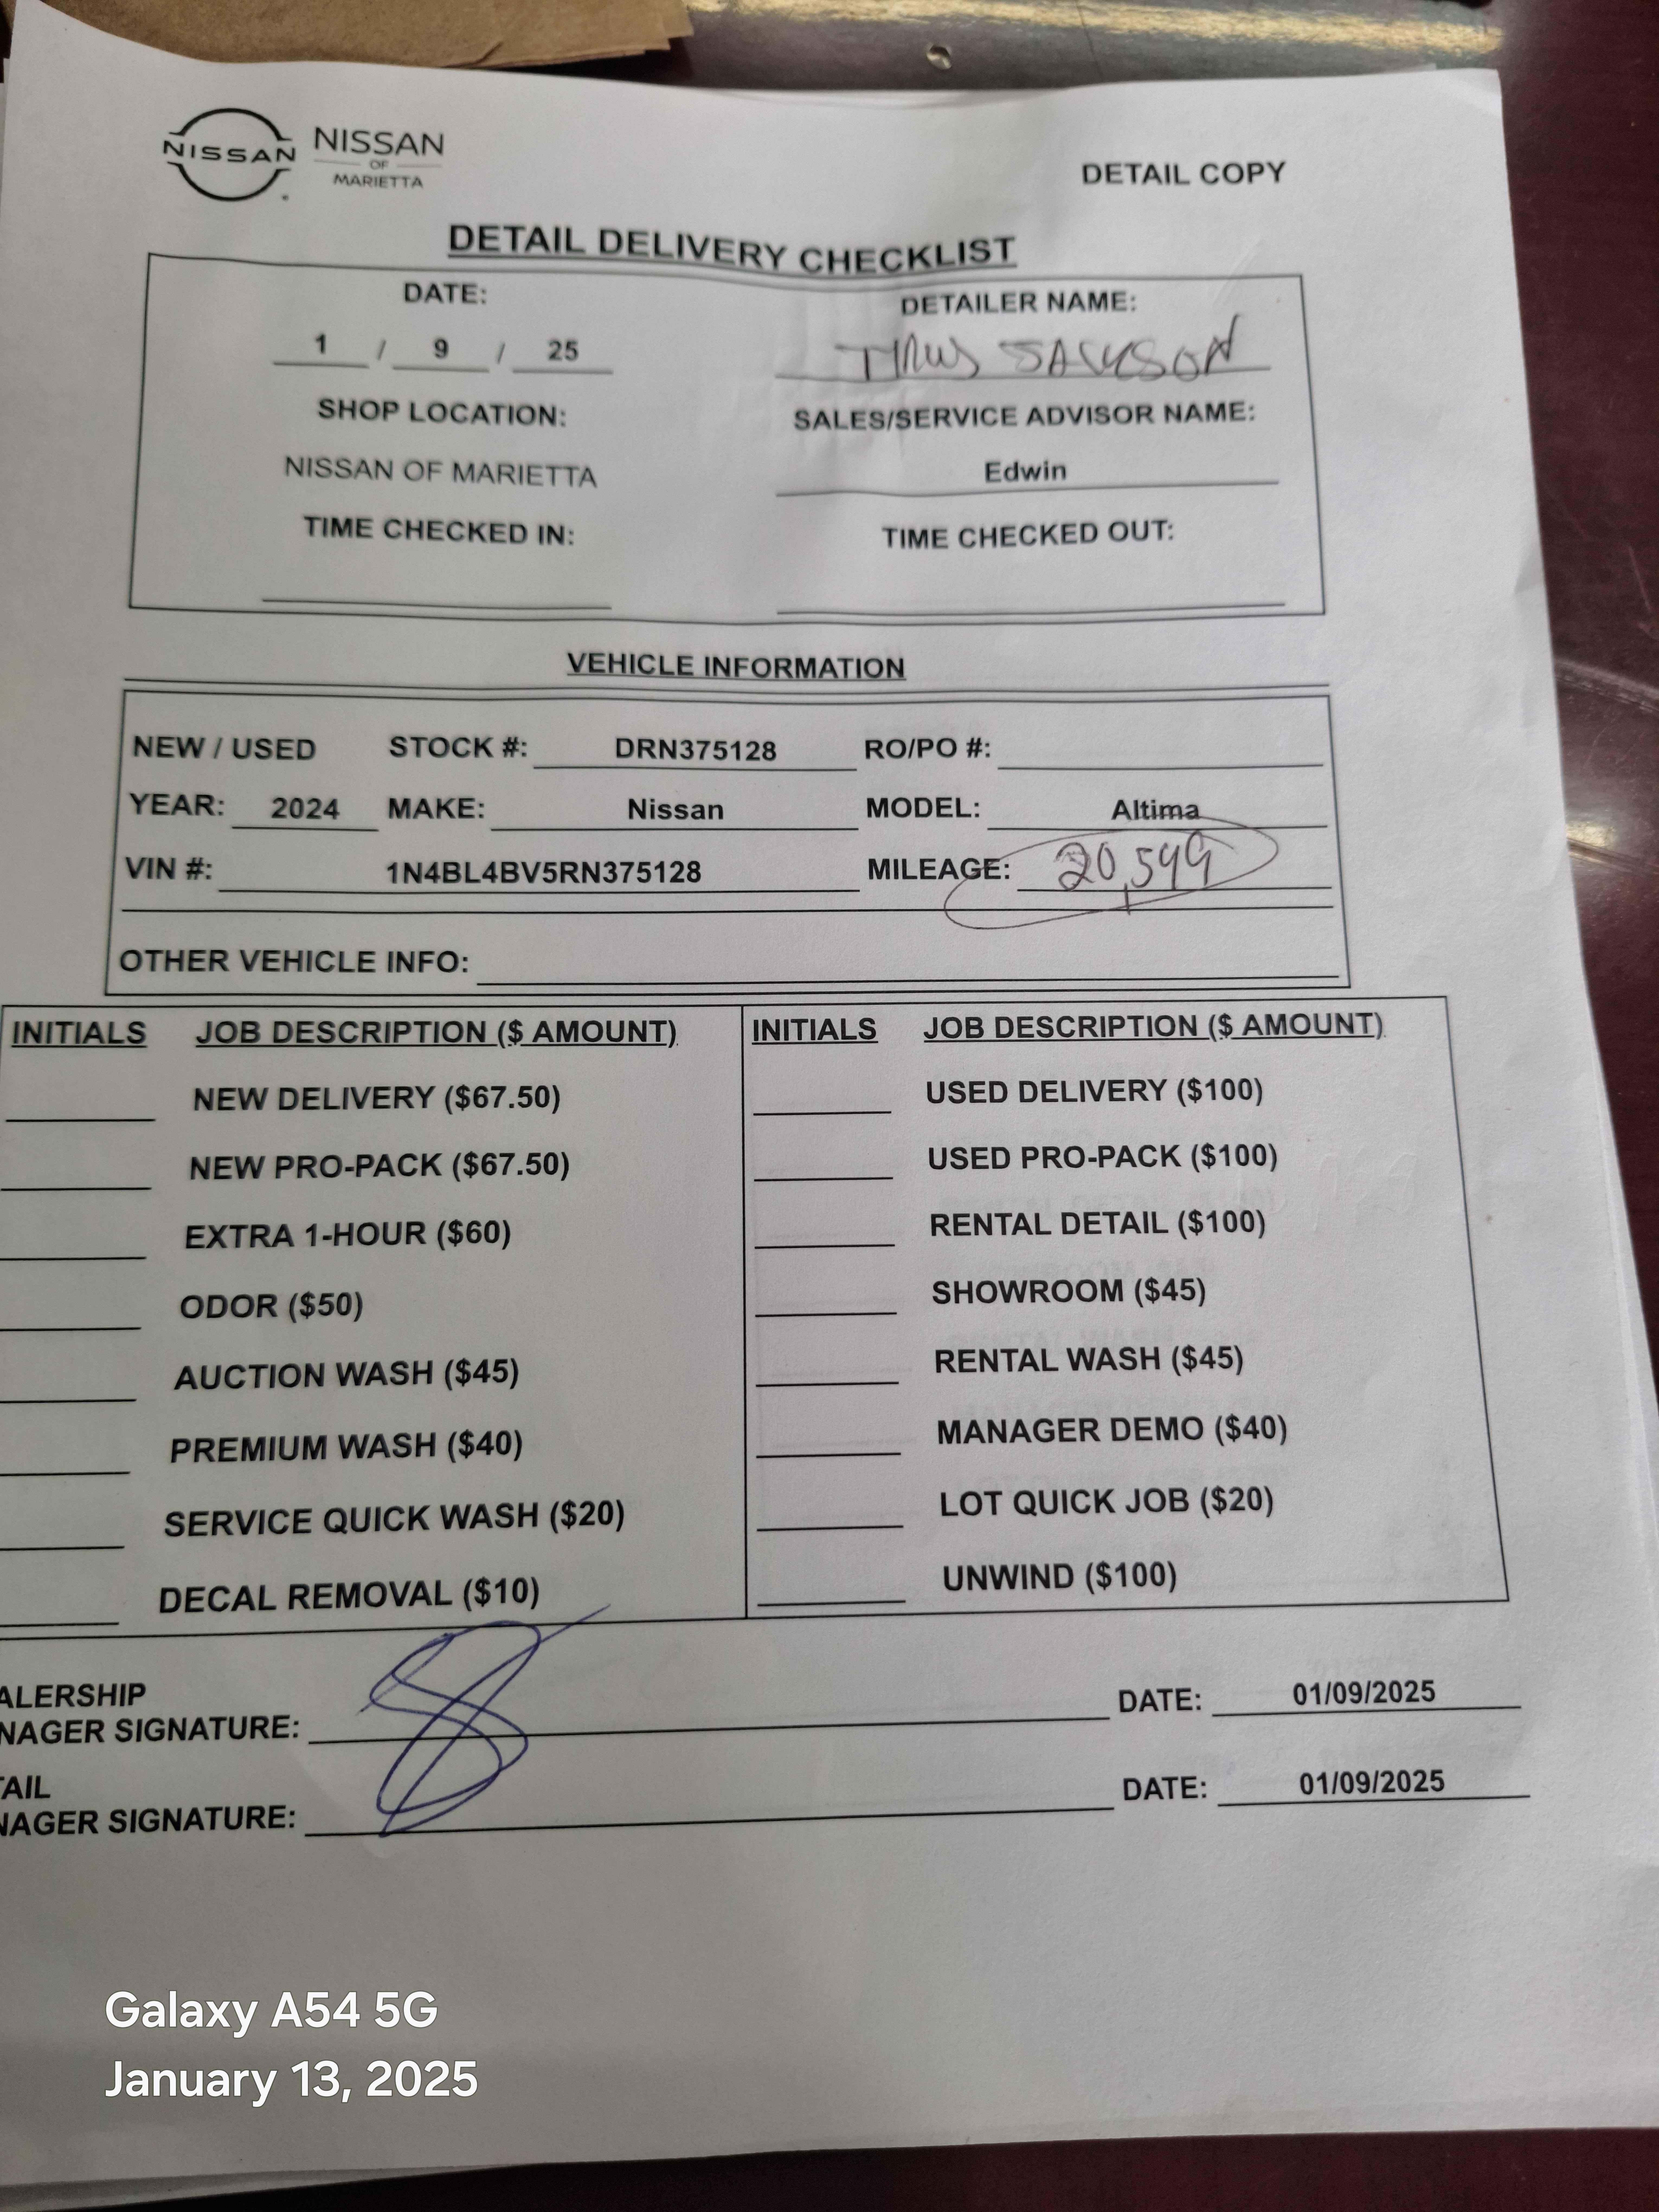 NISSAN NISSAN
OF
MARIETTA
DETAIL COPY
DETAIL DELIVERY CHECKLIST
DATE: DETAILER NAME:
1 / 9 / 25 JACKSON
SHOP LOCATION: SALES/SERVICE ADVISOR NAME:
NISSAN OF MARIETTA Edwin
TIME CHECKED IN: TIME CHECKED OUT:
VEHICLE INFORMATION
NEW / USED STOCK #: DRN375128 RO/PO #:
YEAR: 2024 MAKE: Nissan MODEL: Altima
VIN #: 1N4BL4BV5RN375128 MILEAGE: 20,599
OTHER VEHICLE INFO:
INITIALS JOB DESCRIPTION ($ AMOUNT) INITIALS JOB DESCRIPTION ($ AMOUNT)
NEW DELIVERY ($67.50) USED DELIVERY ($100)
NEW PRO-PACK ($67.50) USED PRO-PACK ($100)
EXTRA 1-HOUR ($60) RENTAL DETAIL ($100)
ODOR ($50) SHOWROOM ($45)
AUCTION WASH ($45) RENTAL WASH ($45)
PREMIUM WASH ($40) MANAGER DEMO ($40)
SERVICE QUICK WASH ($20) LOT QUICK JOB ($20)
DECAL REMOVAL ($10) UNWIND ($100)
ALERSHIP
NAGER SIGNATURE: DATE: 01/09/2025
TAIL
NAGER SIGNATURE: DATE: 01/09/2025
Galaxy A54 5G
January 13, 2025